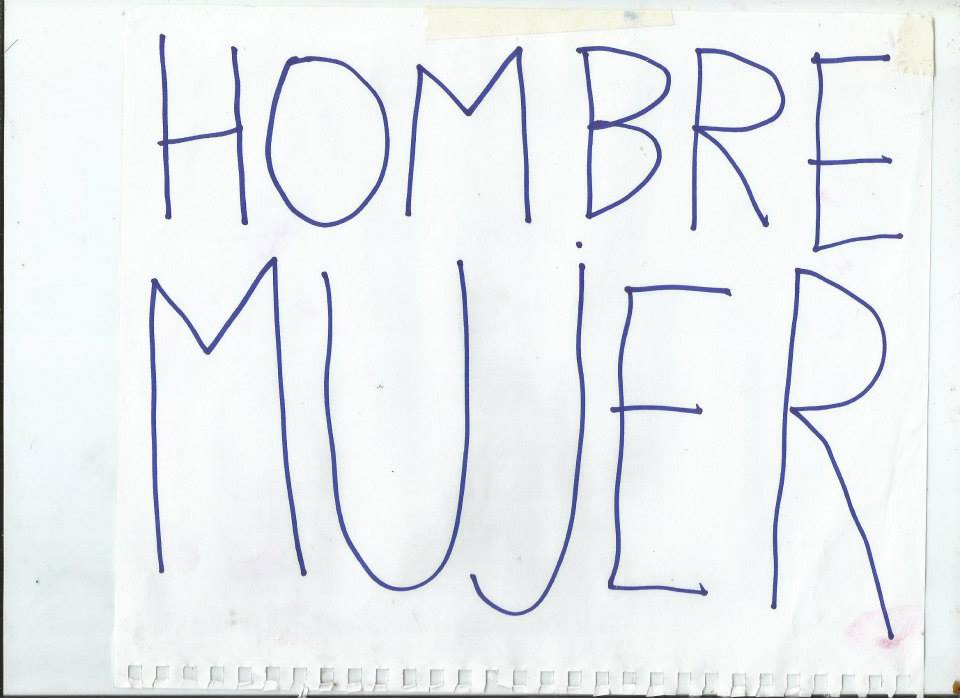 HOMBRE
MUJER